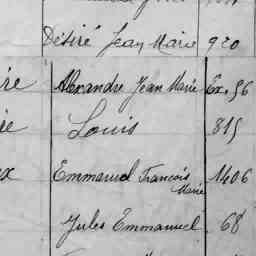 Désiré Jean Marie 920
re Alexandre Jean Marie Ex. 56
re Louis 815
x Emmanuel François Marie 1406
Jules Emmanuel 68